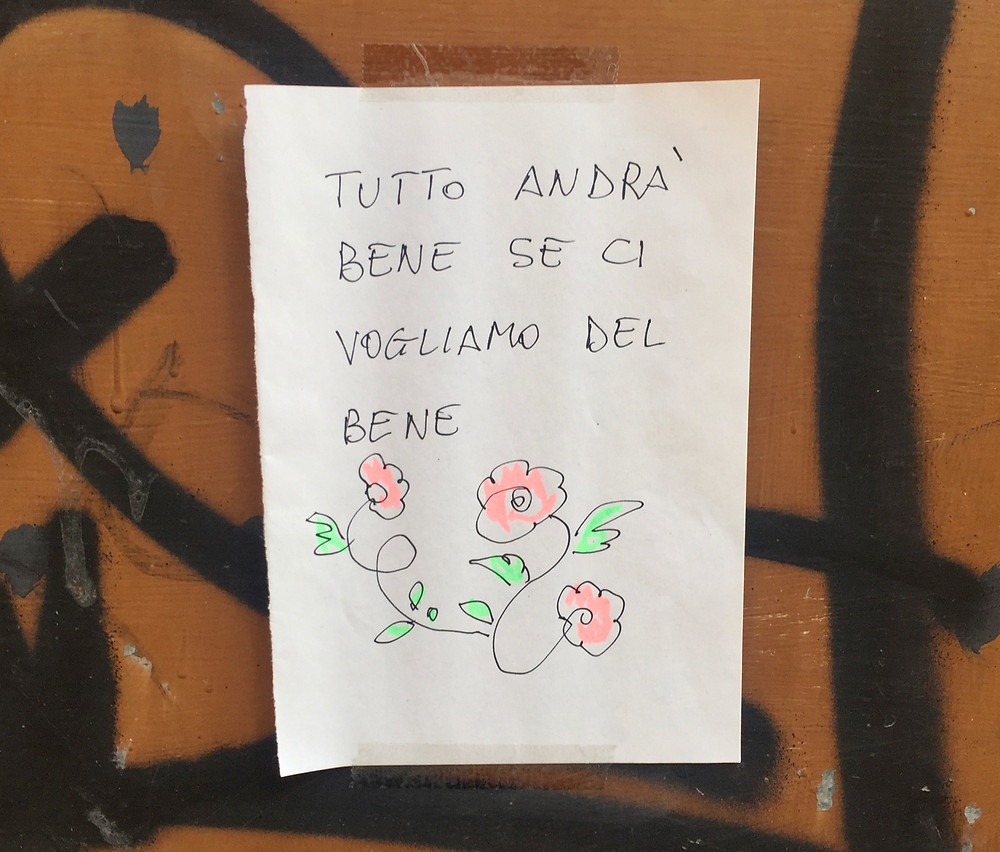 TUTTO ANDRÀ
BENE SE CI
VOGLIAMO DEL
BENE